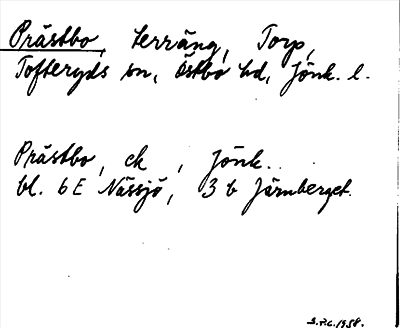 Prästbo, terräng, Torp,
Tofteryds sn, Östbo hd, Jönk. l.
Prästbo, ek , Jönk.
bl. 6E Nässjö, 3 b Järnberget.
1958.